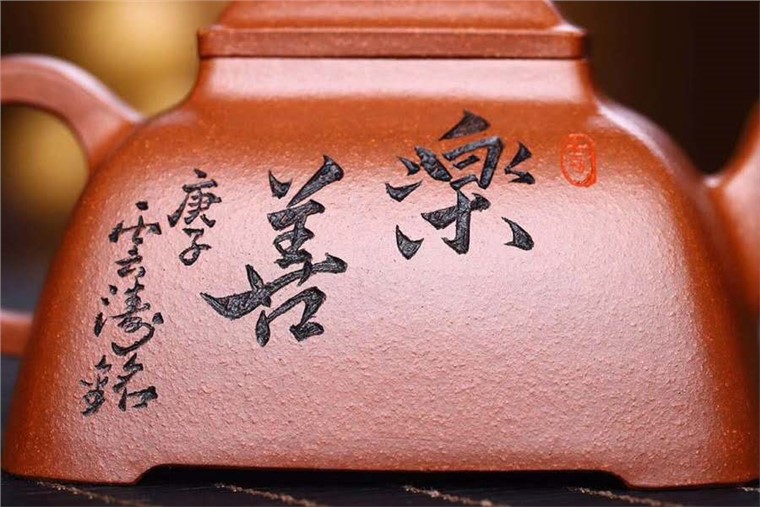 樂善
庚子
雲濤銘